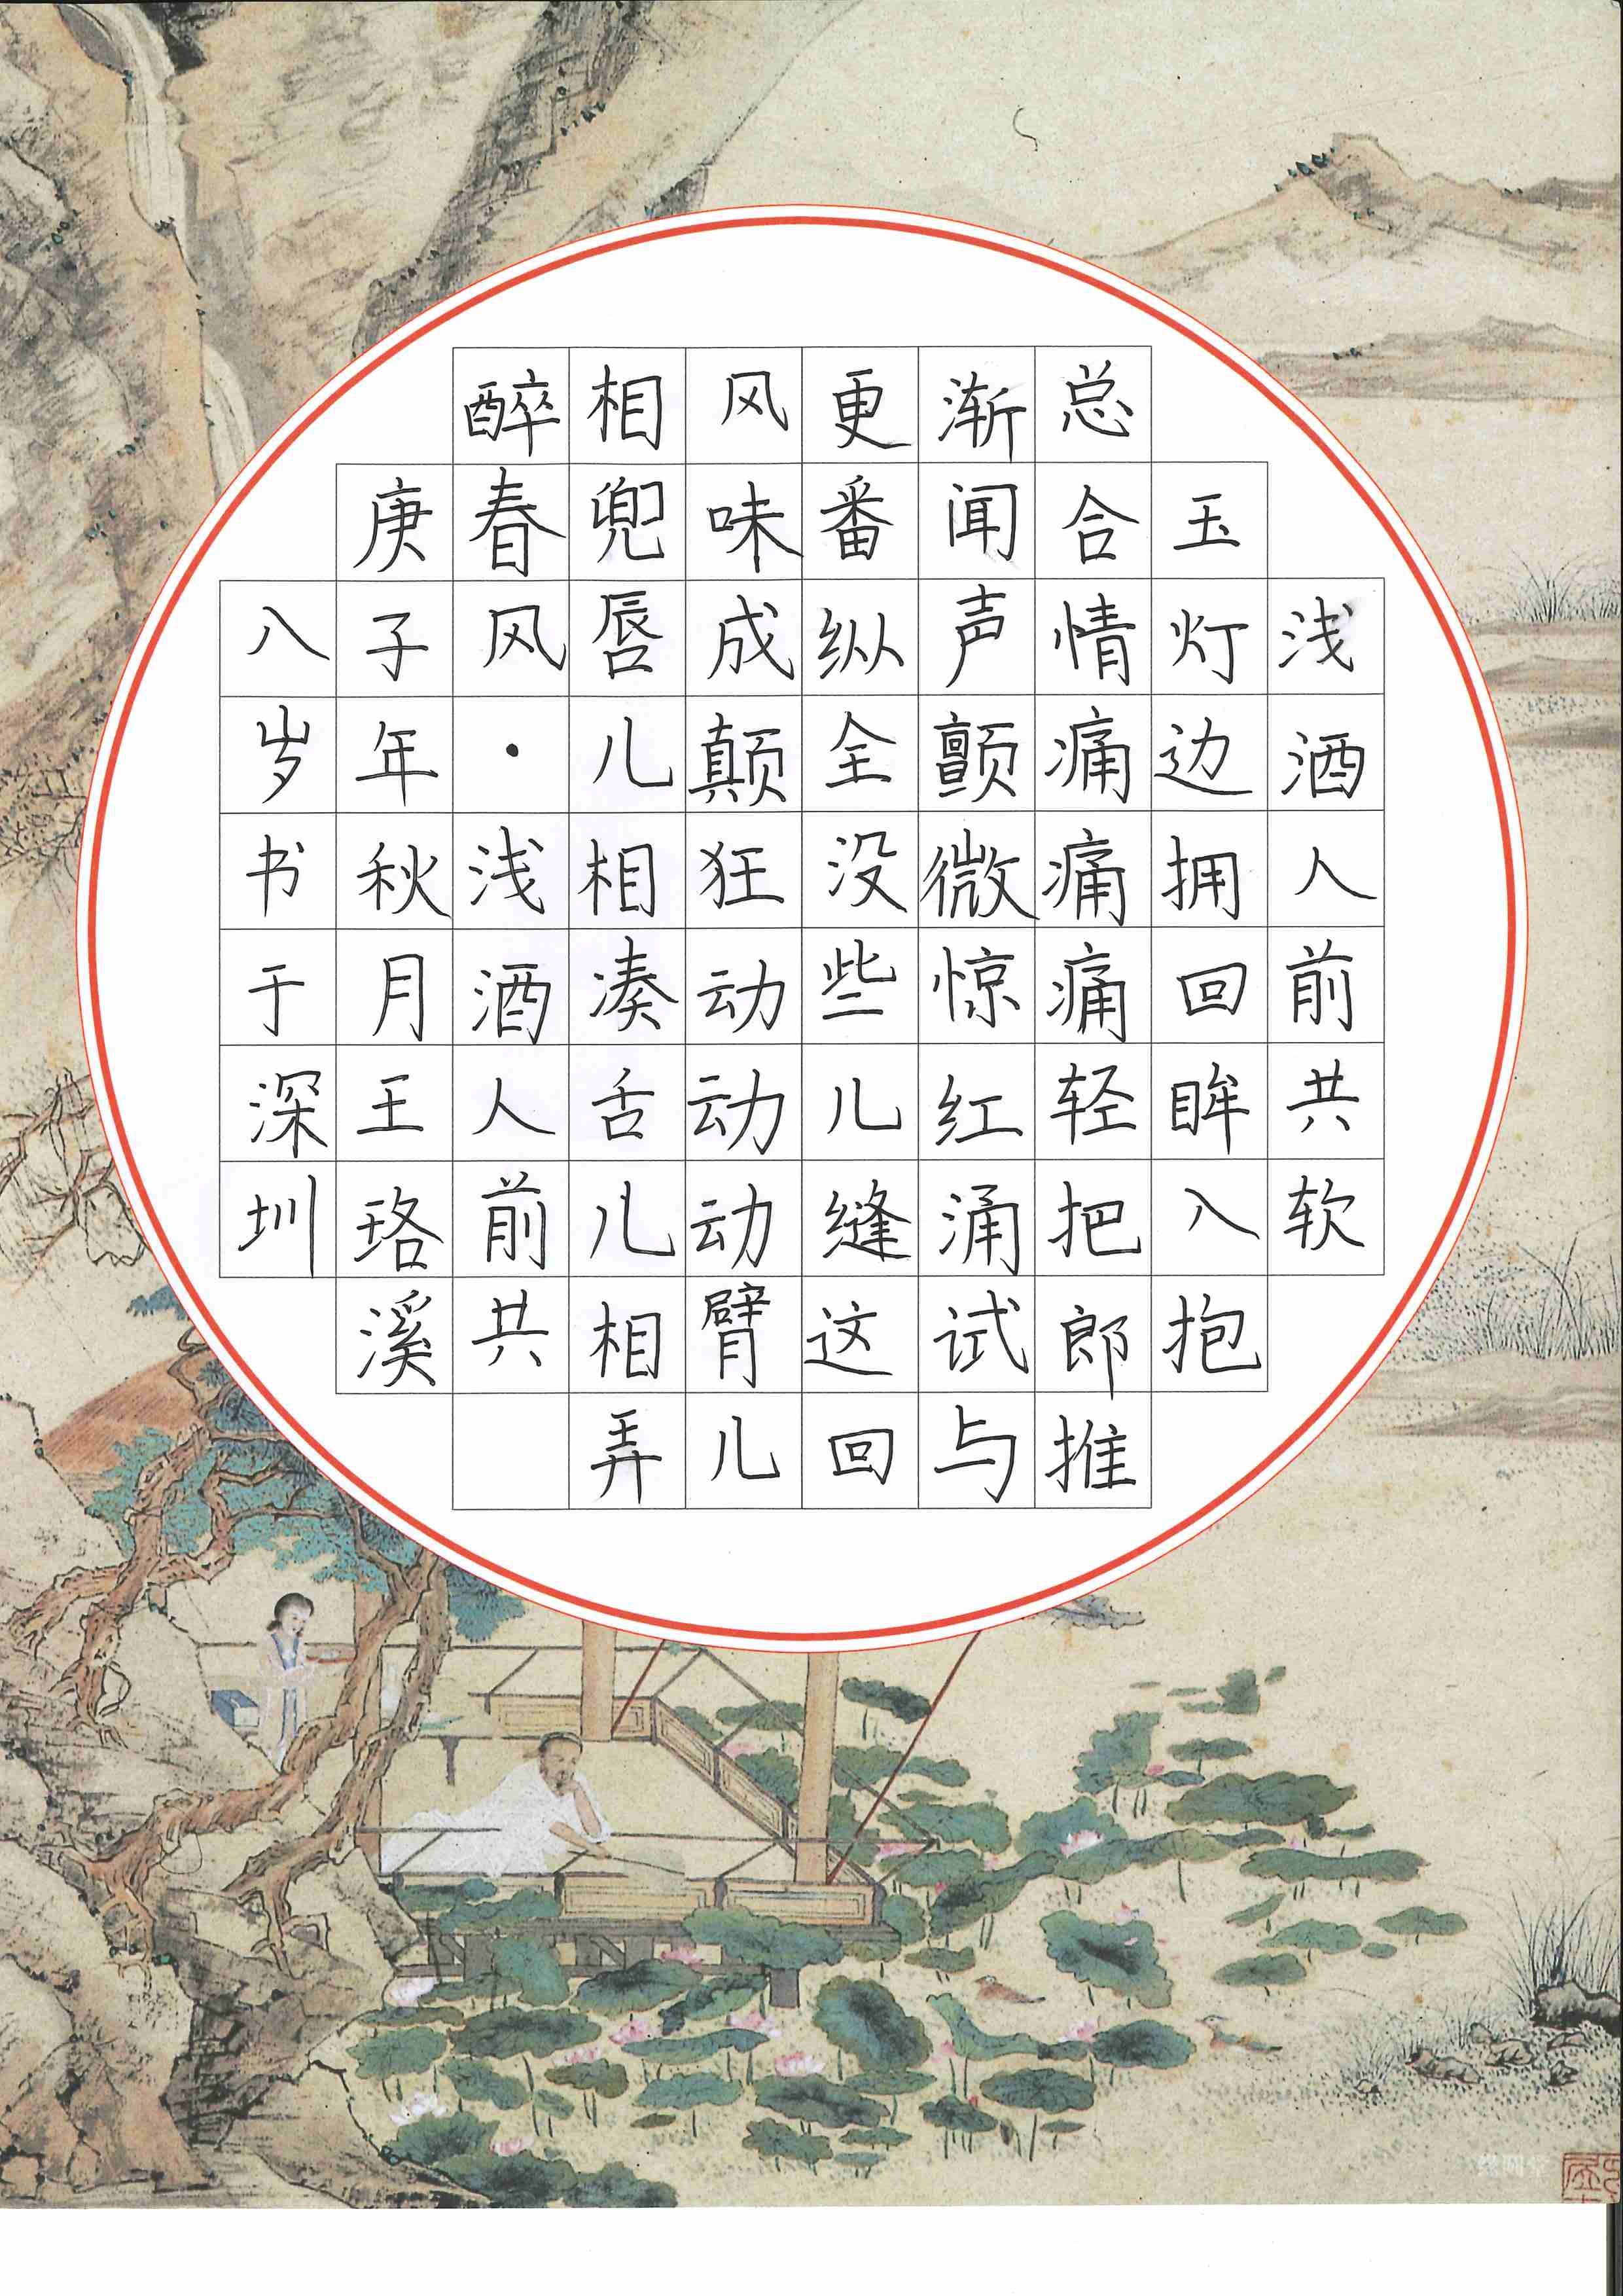 浅酒人前共软
玉灯边拥回眸入抱
总合情痛痛痛轻把郎推
渐闻声颤微惊红涌试与
更番纵全没些儿缝这回
风味成颠狂动动动臂儿
相兜唇儿相凑舌儿相弄
醉春风·浅酒人前共
庚子年秋月王珞溪
八岁书于深圳